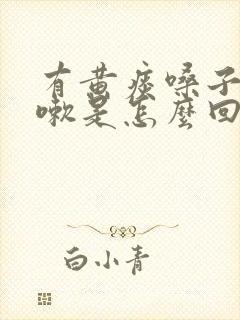 有黄痰嗓子
嗽是怎麼回
白小青